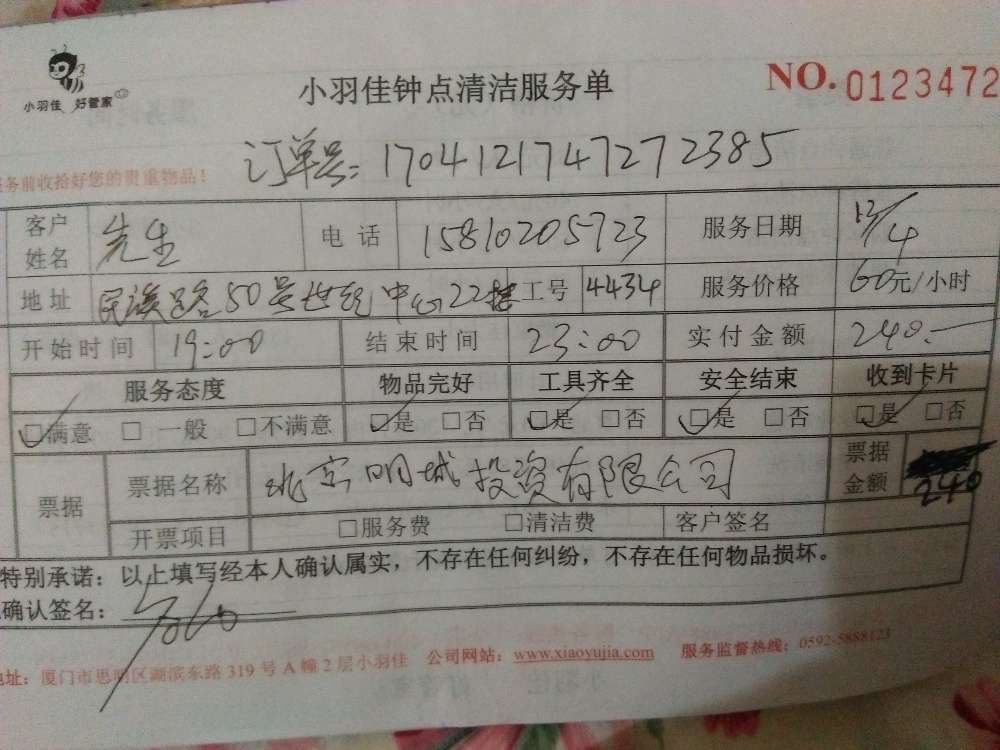 小羽佳 好管家
小羽佳钟点清洁服务单
NO. 0123472
订单号:1704121747272385
务前收拾好您的贵重物品!
客户姓名 先生 电话 15810205723 服务日期 12/4
地址 民族路50号世纪中心22楼 工号 4434 服务价格 60元/小时
开始时间 19:00 结束时间 23:00 实付金额 240.—
服务态度 物品完好 工具齐全 安全结束 收到卡片
☑满意 □一般 □不满意 ☑是 □否 ☑是 □否 ☑是 □否 ☑是 □否
票据 票据名称 北京明城投资有限公司 票据金额 240
开票项目 □服务费 □清洁费 客户签名
特别承诺:以上填写经本人确认属实,不存在任何纠纷,不存在任何物品损坏。
确认签名:
地址:厦门市思明区湖滨东路319号A幢2层小羽佳 公司网站:www.xiaoyujia.com 服务监督热线:0592-5888123